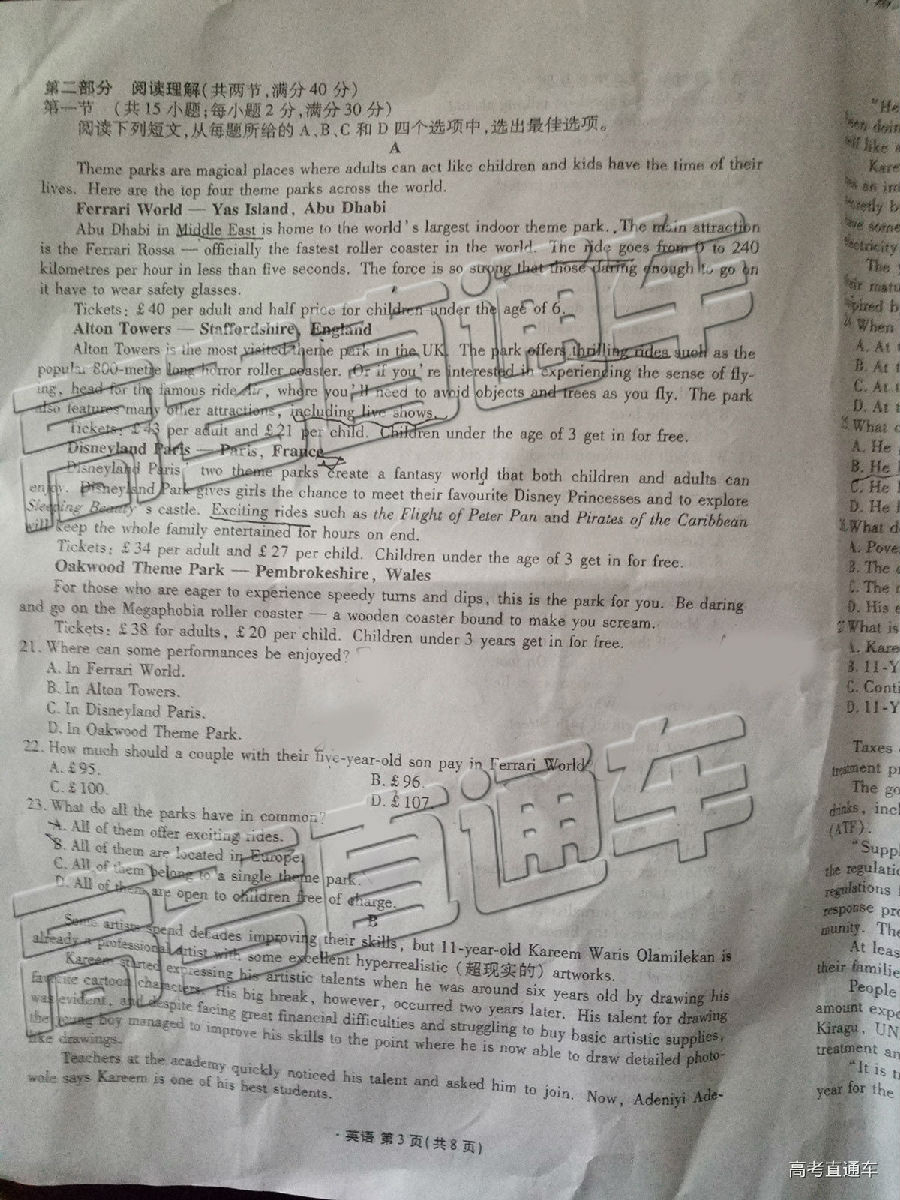 第二部分 阅读理解(共两节,满分40分)
第一节 (共15小题;每小题2分,满分30分)
阅读下列短文,从每题所给的A、B、C和D四个选项中,选出最佳选项。
A
Theme parks are magical places where adults can act like children and kids have the time of their
lives. Here are the top four theme parks across the world.
Ferrari World — Yas Island, Abu Dhabi
Abu Dhabi in Middle East is home to the world's largest indoor theme park. The main attraction
is the Ferrari Rossa — officially the fastest roller coaster in the world. The ride goes from 0 to 240
kilometres per hour in less than five seconds. The force is so strong that those daring enough to go on
it have to wear safety glasses.
Tickets: £40 per adult and half price for children under the age of 6.
Alton Towers — Staffordshire, England
Alton Towers is the most visited theme park in the UK. The park offers thrilling rides such as the
popular 800-metre long horror roller coaster. Or if you're interested in experiencing the sense of fly-
ing, head for the famous ride Air, where you'll need to avoid objects and trees as you fly. The park
also features many other attractions, including live shows.
Tickets: £43 per adult and £21 per child. Children under the age of 3 get in for free.
Disneyland Paris — Paris, France
Disneyland Paris' two theme parks create a fantasy world that both children and adults can
enjoy. Disneyland Park gives girls the chance to meet their favourite Disney Princesses and to explore
Sleeping Beauty's castle. Exciting rides such as the Flight of Peter Pan and Pirates of the Caribbean
will keep the whole family entertained for hours on end.
Tickets: £34 per adult and £27 per child. Children under the age of 3 get in for free.
Oakwood Theme Park — Pembrokeshire, Wales
For those who are eager to experience speedy turns and dips, this is the park for you. Be daring
and go on the Megaphobia roller coaster — a wooden coaster bound to make you scream.
Tickets: £38 for adults, £20 per child. Children under 3 years get in for free.
21. Where can some performances be enjoyed?
A. In Ferrari World.
B. In Alton Towers.
C. In Disneyland Paris.
D. In Oakwood Theme Park.
22. How much should a couple with their five-year-old son pay in Ferrari World?
A. £95. B. £96.
C. £100. D. £107.
23. What do all the parks have in common?
A. All of them offer exciting rides.
B. All of them are located in Europe.
C. All of them belong to a single theme park.
D. All of them are open to children free of charge.
B
Some artists spend decades improving their skills, but 11-year-old Kareem Waris Olamilekan is
already a professional artist with some excellent hyperrealistic (超现实的) artworks.
Kareem started expressing his artistic talents when he was around six years old by drawing his
favorite cartoon characters. His big break, however, occurred two years later. His talent for drawing
was evident, and despite facing great financial difficulties and struggling to buy basic artistic supplies,
the young boy managed to improve his skills to the point where he is now able to draw detailed photo-
like drawings.
Teachers at the academy quickly noticed his talent and asked him to join. Now, Adeniyi Ade-
wole says Kareem is one of his best students.
·英语 第3页(共8页)
"He
been doin
self like a
Kare
have some
electricity
The
When
A. At
B. At t
C. At t
D. At t
What c
A. He
B. He
C. He
D. He
What d
A. Pove
B. The
C. The
D. His e
What is
A. Kare
B. 11-Y
C. Conti
D. 11-Y
Taxes
treatment pr
The go
drinks, incl
(ATF).
"Suppl
the regulatio
regulations
response pro
munity. The
At leas
their familie
People
amount expe
Kiragu, UN
treatment an
"It is t
year for the
高考直通车
高考直通车
高考直通车